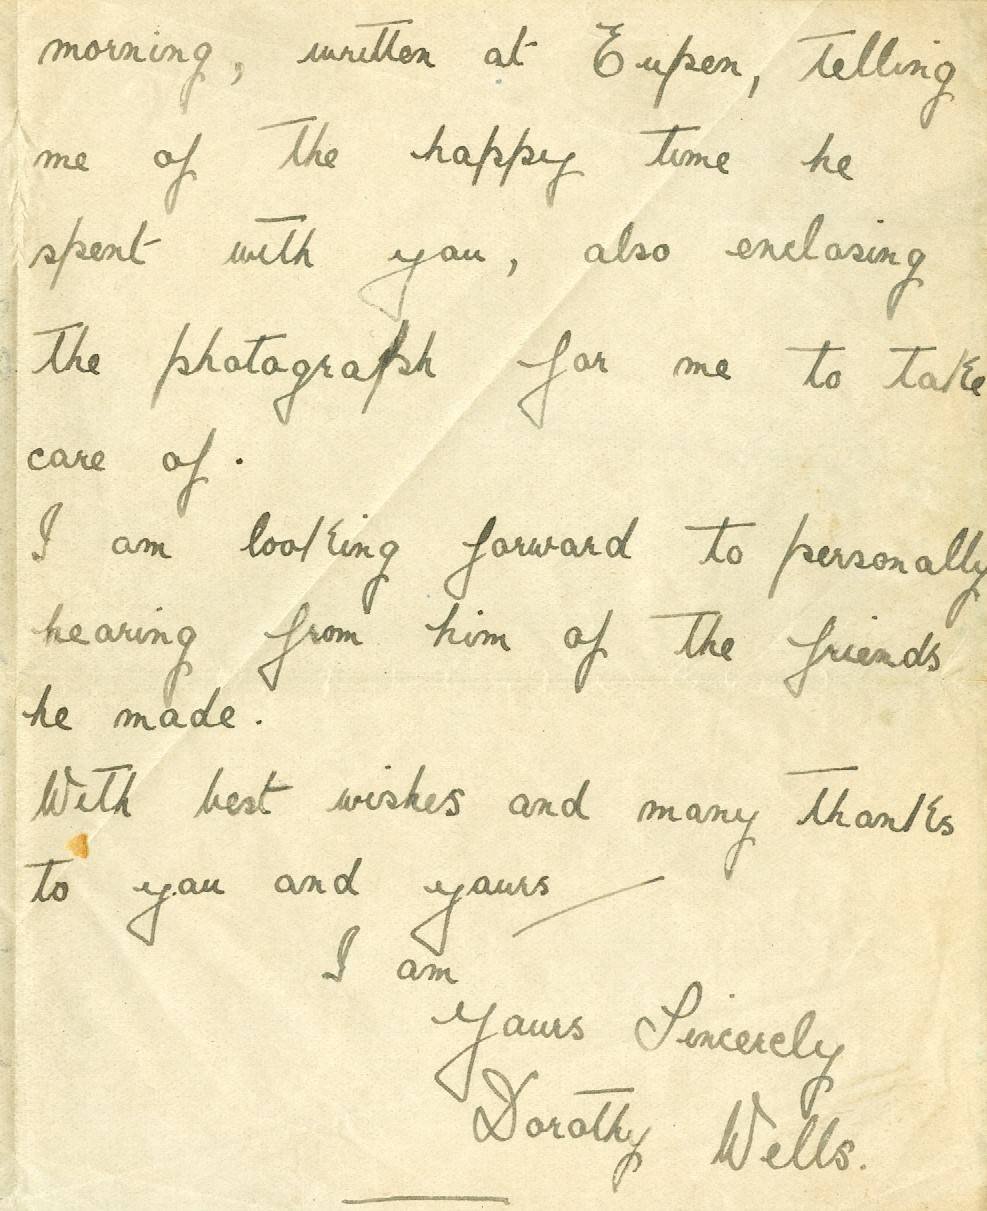 morning, written at Eupen, telling
me of the happy time he
spent with you, also enclosing
the photograph for me to take
care of.
I am looking forward to personally
hearing from him of the friends
he made.
With best wishes and many thanks
to you and yours —
I am
Yours Sincerely
Dorothy Wells.